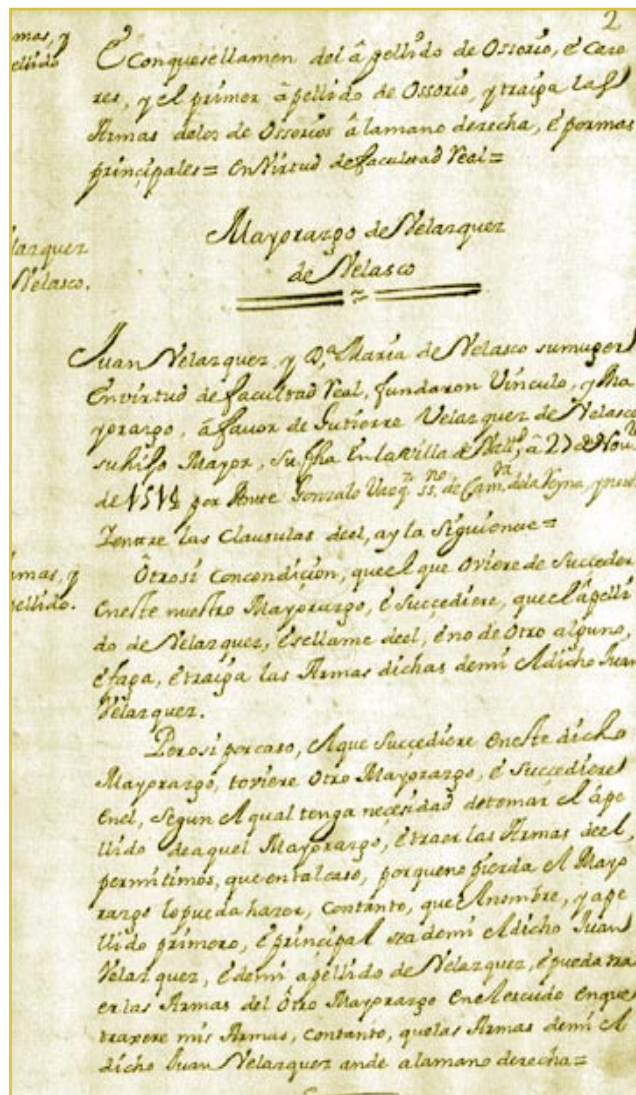 2
mas, y
ellido
E Conquesellamen del âpellido de Ossorio, é Care
res, y él primer âpellido de Ossorio, y traiga las
Armas delos de Ossorios âlamano derecha, é pormas
principales= EnVirtud defacultad Real=
Mayorazgo de Velazquez
de Velasco
lazquez
Velasco.
Juan Velazquez, y D.ª Maria de Velasco sumuger
Envirtud de facultad Real, fundaron Vinculo, y Ma
yorazgo, âfavor de Gutierre Velazquez de Velasco
suhijo Mayor, Sufha En lavilla de â 27 de Nov.
de por Ante Gonzalo ss.no de Cam.ra dela Reyna, y
Zentre las Clausulas deel, ay la Siguiente=
rmas, y
pellido.
Ôtrosi Concondiçion, queel que Oviere de Succeder
eneste nuestro Mayorazgo, é Succediere, queel âpelli
do de Velazquez, ésellame deel, éno de Otro alguno,
éfaga, étraiga las Armas dichas demi el dicho Juan
Velazquez.
Perosi porcaso, elque Succediere eneste dicho
Mayorazgo, toviere Otro Mayorazgo, é Succediere
enel, Segun el qual tenga necesidad detomar el âpe
llido deaquel Mayorazgo, étraer las Armas deel,
permitimos, que entalcaso, porqueno pierda el Mayo
razgo lopueda hazer, Contanto, que el nombre, y ape
llido primero, é principal sea demi el dicho Juan
Velazquez, é demi apellido de Velazquez, épueda tra
erlas Armas del Ôtro Mayorazgo enelescudo enque
traxere mis Armas, contanto, quelas Armas demi el
dicho Juan Velazquez ande alamano derecha=